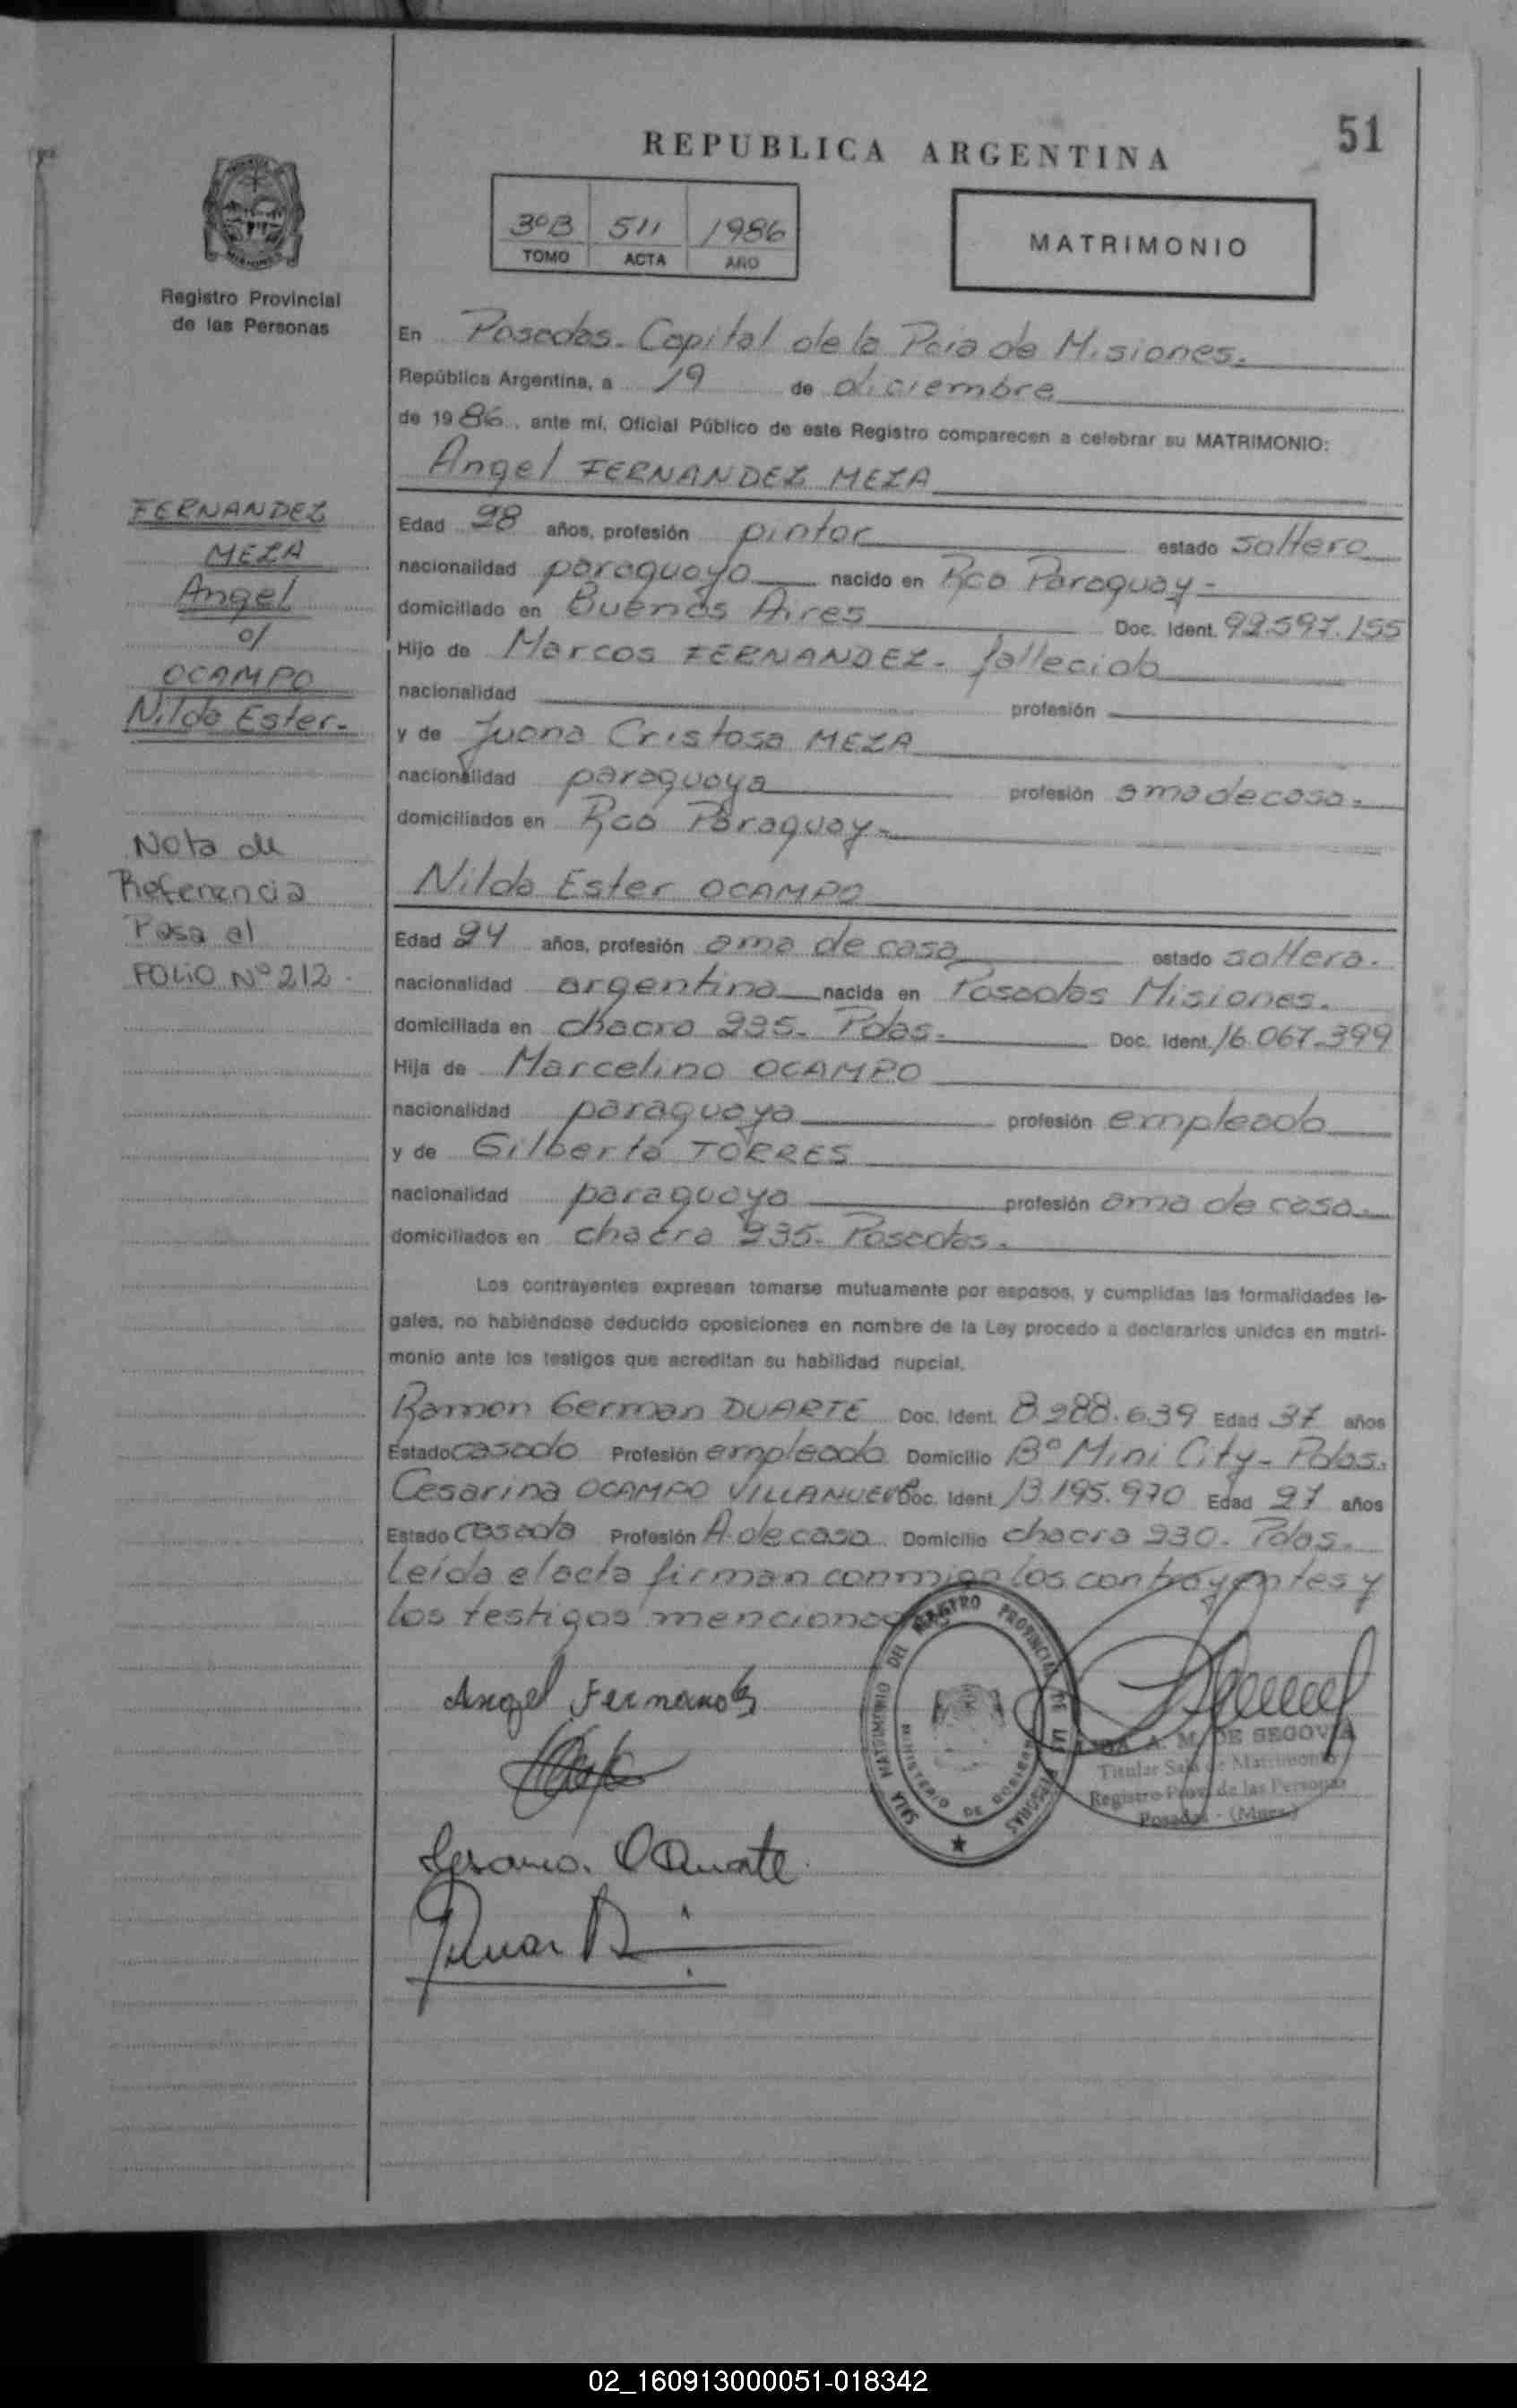 51
REPUBLICA ARGENTINA
3ºB 511 1986
TOMO ACTA AÑO
MATRIMONIO
Registro Provincial
de las Personas
En Posadas. Capital de la Pcia de Misiones.
República Argentina, a 19 de diciembre
de 1986, ante mí, Oficial Público de este Registro comparecen a celebrar su MATRIMONIO:
Angel FERNANDEZ MEZA
Edad 28 años, profesión pintor estado soltero
nacionalidad paraguayo nacido en Rca Paraguay-
domiciliado en Buenos Aires Doc. Ident. 92.597.155
Hijo de Marcos FERNANDEZ- fallecido
nacionalidad profesión
y de Juana Cristosa MEZA
nacionalidad paraguaya profesión ama de casa.
domiciliados en Rca Paraguay-
Nilda Ester OCAMPO
Edad 24 años, profesión ama de casa estado soltera.
nacionalidad argentina nacida en Posadas Misiones.
domiciliada en chacra 235. Pdas. Doc. Ident. 16.067.399
Hija de Marcelino OCAMPO
nacionalidad paraguayo profesión empleado
y de Gilberta TORRES
nacionalidad paraguaya profesión ama de casa.
domiciliados en chacra 235. Posadas.
Los contrayentes expresan tomarse mutuamente por esposos, y cumplidas las formalidades le-
gales, no habiéndose deducido oposiciones en nombre de la Ley procedo a declararlos unidos en matri-
monio ante los testigos que acreditan su habilidad nupcial.
Ramon German DUARTE Doc. Ident. 8.288.639 Edad 37 años
Estado casado Profesión empleado Domicilio Bº Mini City- Pdas.
Cesarina OCAMPO VILLANUEVA Doc. Ident. 13.195.970 Edad 27 años
Estado casada Profesión A. de casa Domicilio chacra 230. Pdas.
Leída el acta firman conmigo los contrayentes y
los testigos mencionados
FERNANDEZ
MEZA
Angel
c/
OCAMPO
Nilda Ester-
Nota de
Referencia
Pasa al
FOLIO Nº 212.
Angel Fernandez
SALA MATRIMONIO DEL REGISTRO PROVINCIAL DE LAS PERSONAS
MINISTERIO DE GOBIERNO
A. M. DE SEGOVIA
Titular Sala de Matrimonio
Registro Prov. de las Personas
Posadas - (Mnes.)
02_160913000051-018342